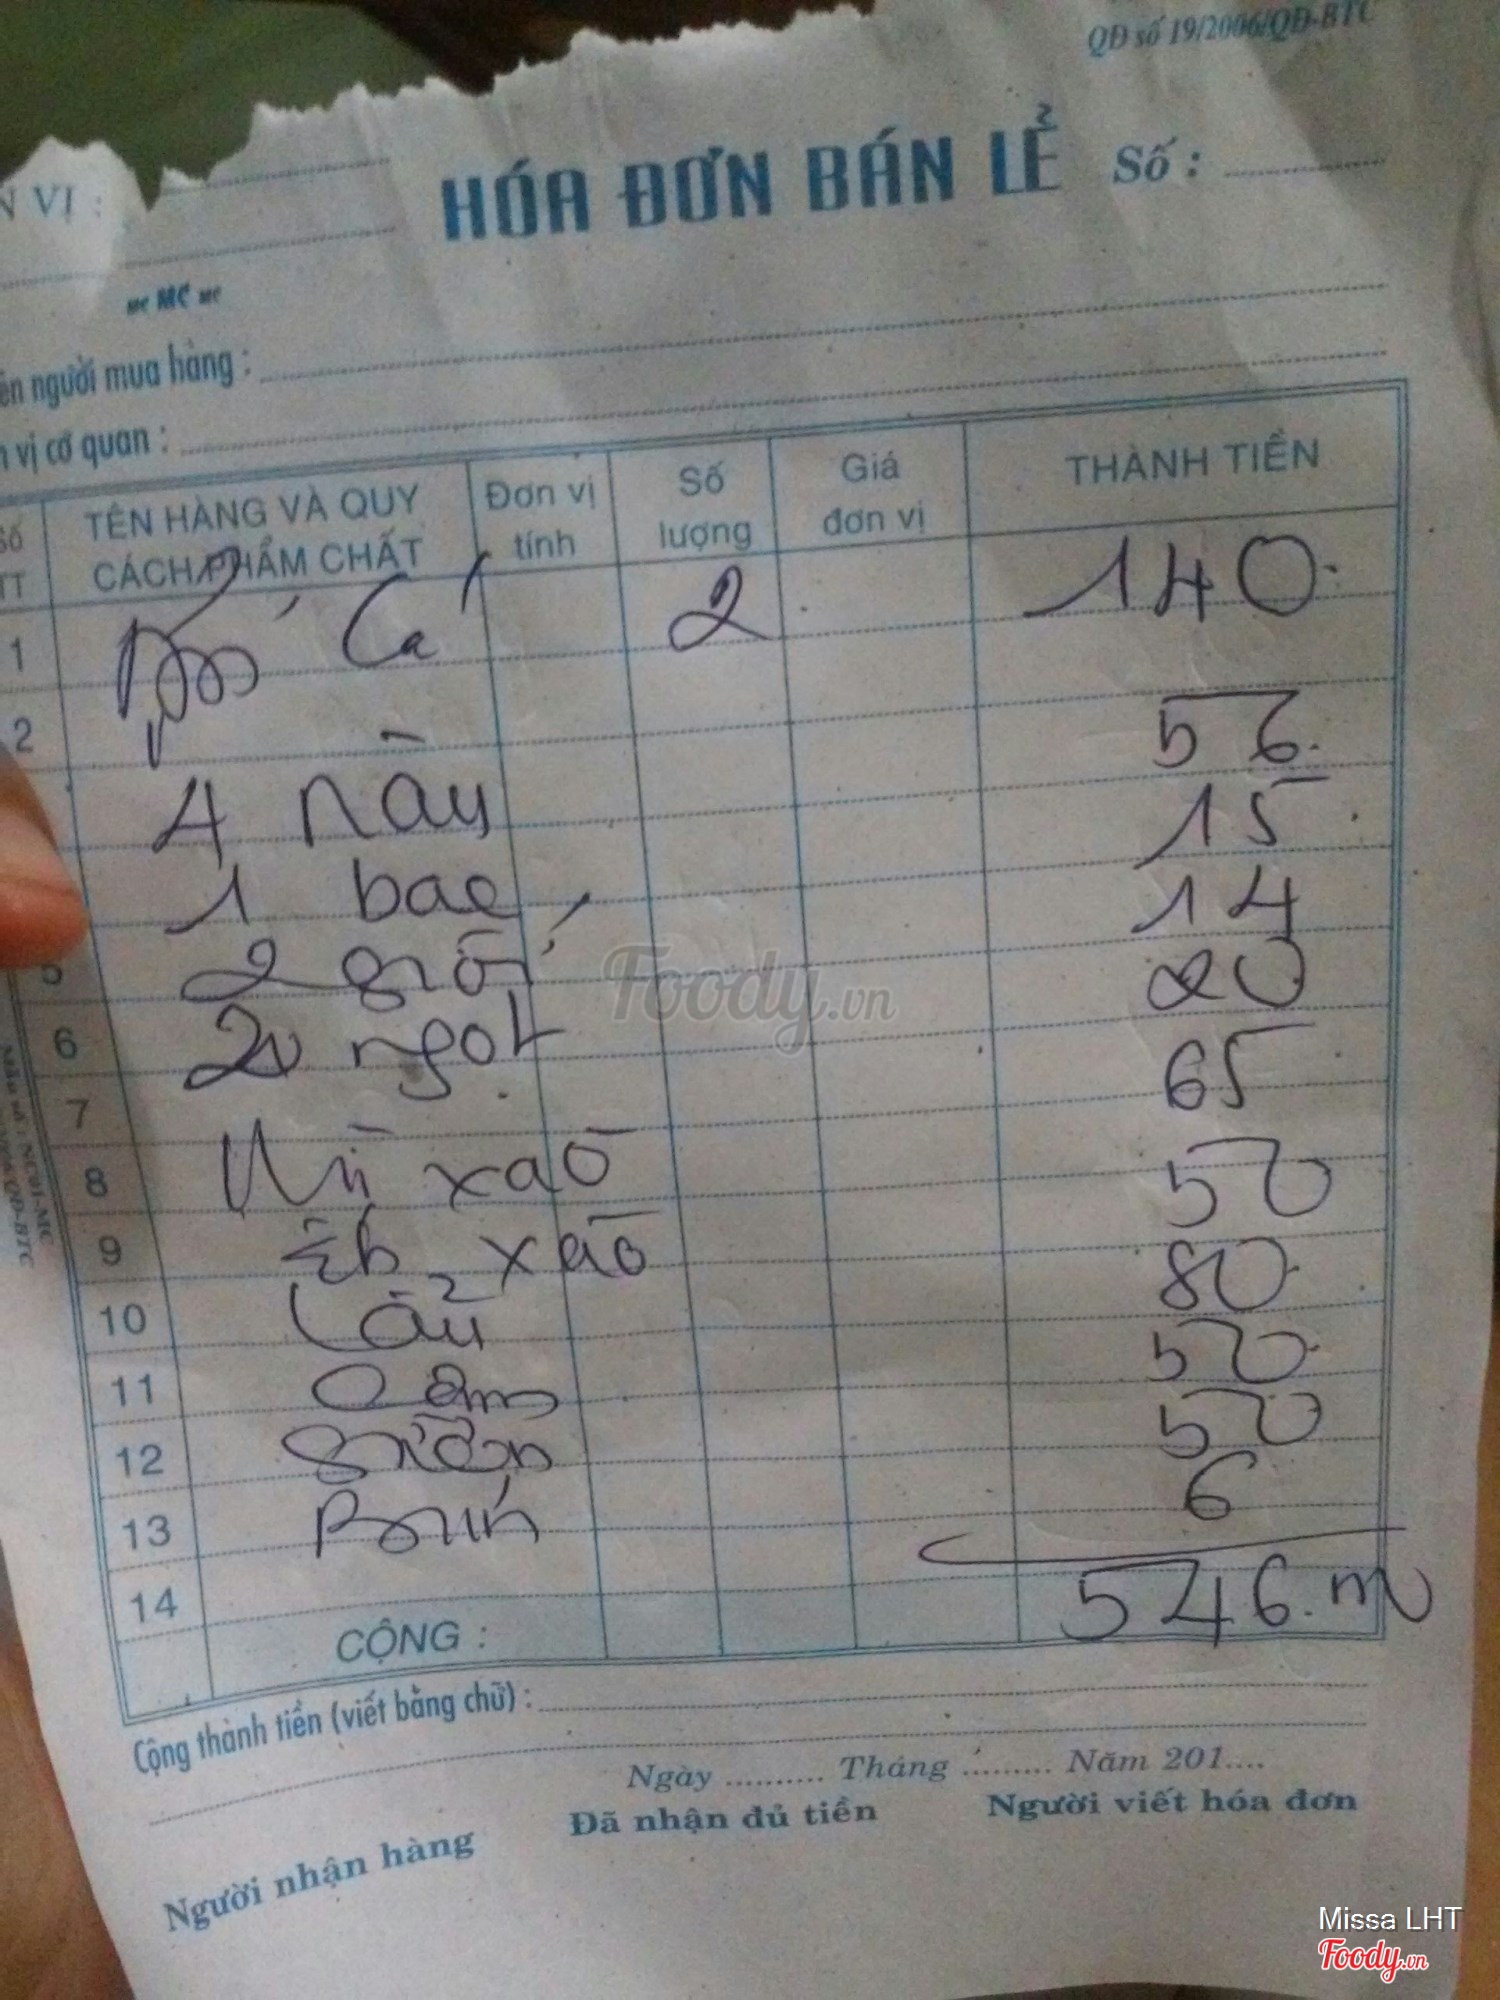 QĐ số 19/2006/QĐ-BTC
N VỊ :
HÓA ĐƠN BÁN LẺ Số :
MC MC MC
ên người mua hàng :
n vị cơ quan :
Số TT TÊN HÀNG VÀ QUY CÁCH PHẨM CHẤT Đơn vị tính Số lượng Giá đơn vị THÀNH TIỀN
1 Cá 2 140
2
4 này 56
1 bac 15
5 2 14
6 20 ngọt 20
7 65
8 xào
9 Ếch xào 50
10 Lẩu 80
11 50
12 50
13 Bún 6
14
CỘNG : 546.
Cộng thành tiền (viết bằng chữ) :
Ngày .......... Tháng ......... Năm 201....
Người nhận hàng Đã nhận đủ tiền Người viết hóa đơn
Mẫu số : NC01-MC
Foody.vn
Missa LHT
Foody.vn